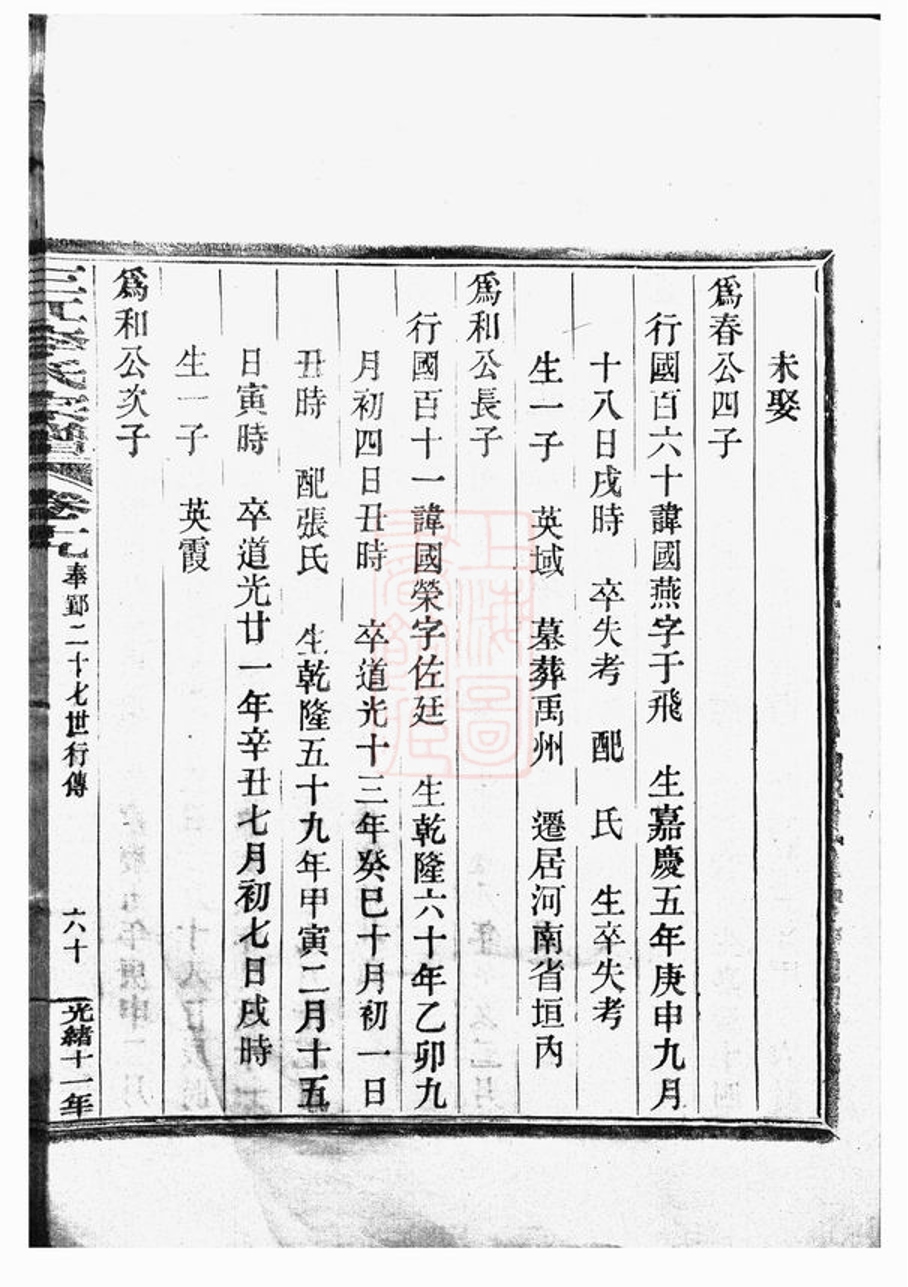 未娶
爲春公四子
行國百六十諱國燕字于飛 生嘉慶五年庚申九月
十八日戌時 卒失考 配 氏 生卒失考
生一子 英域 墓葬禹州 遷居河南省垣內
爲和公長子
行國百十一諱國榮字佐廷 生乾隆六十年乙卯九
月初四日丑時 卒道光十三年癸巳十月初一日
丑時 配張氏 生乾隆五十九年甲寅二月十五
日寅時 卒道光廿一年辛丑七月初七日戌時
生一子 英霞
爲和公次子
三江李氏宗譜 卷十九 奉鄞二十七世行傳 六十 光緒十一年
上海圖書館藏